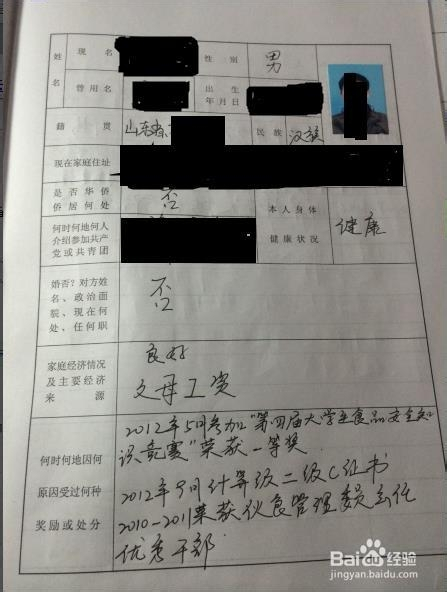 姓 现名 性别 男
名 曾用名 出生年月日
籍贯 山东省 民族 汉族
现在家庭住址
是否华侨
侨居何处 否 本人身体
何时何地何人
介绍参加共产
党或共青团 健康状况 健康
婚否？对方姓
名、政治面
貌、现在何
处、任何职 否
家庭经济情况 良好
及主要经济
来源 父母工资
2012年5月参加"第四届大学生食品安全知
识竞赛"荣获一等奖
何时何地因何
原因受过何种
奖励或处分
2012年9月计等级二级C证书
2010-2011荣获伙食管理委员会任
优秀干部
Baidu 经验
jingyan.baidu.com